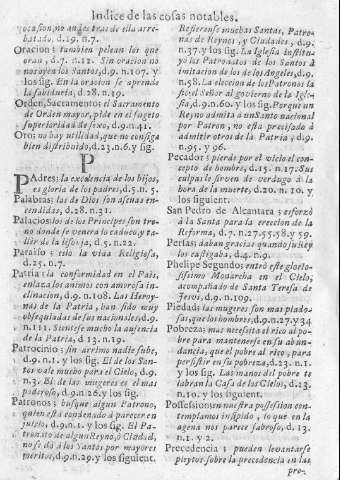 Indice de las cosas notables.
vocasion, no antes tras de ella arrebatado. d.19. n.1.
Oracion: tambien pelean los que
oran, d.7. n.12. Sin oracion no
nos oyen los Santos, d.9. n.107. y
los sig. En la oracion se aprende
la sabiduria, d.28. n.19.
Orden, Sacramento: el Sacramento
de Orden mayor, pide en el sugeto
superioridad de sexo, d.9. n.41.
Oro: no hay utilidad, que no consiga
bien distribuido, d.23. n.6. y sig.
P
PAdres: la excelencia de los hijos,
es gloria de los padres, d.5. n.5.
Palabras: las de Dios son assenas
d.28. n.31.
Palacios: los de los Principes son trono
donde se venera lo caduco, y taller
de la lisonja, d.5. n.22.
Paraiso: lo es la vida Religiosa,
d.25. n.7.
Patria: la conformidad en el Pais,
enlaza los animos con amorosa inclinacion,
d.9. n.108. Las Heroynas
de la Patria, han sido muy
obsequiadas de sus nacionales, d.9.
n.111. Sientese mucho la ausencia
de la Patria, d.13. n.19.
Patrocinio: sin arrimo nadie sube,
d.9. n.1. y los sig. El de los Santos
vale mucho para el Cielo, d.9.
n.3. El de las mugeres es el mas
poderoso, d.9. n.26. y los sig.
Patronos: busque algun Patrono,
quien està condenado à parecer en
juicio, d.9. n.1. y los sig. El Patronato
de algun Reyno, ò Ciudad,
no se dà à los Santos por mayores
meritos, d.9. n.29. y los siguient.
Refierense muchas Santas, Patronas
de Reynos, y Ciudades, d.9.
n.37. y los sig. La Iglesia instituyò
los Patronatos de los Santos à
imitacion de los de los Angeles, d.9.
n.58. La eleccion de los Patronos la
fiò el Señor al govierno de la Iglesia,
d.9. n.60. y los sig. Porque un
Reyno admita à un Santo nacional
por Patron, no està precisado à
admitir otros de la Patria, d.9.
n.95. y 96.
Pecador: pierde por el vicio el concepto
de hombre, d.15. n.17. Sus
culpas le sirven de verdugo à la
hora de la muerte, d.20. n.10. y
los siguient.
San Pedro de Alcantara: esforzò
à la Santa para la ereccion de la
Reforma, d.7. n.27. 55. 58. y 59.
Perlas: daban gracias quando su Rey
los castigaba, d.4. n.9.
Phelipe Segundo: entrò este gloriosissimo
Monarcha en el Cielo,
acompañado de Santa Teresa de
Jesus, d.9. n.109.
Piedad: las mugeres son mas piadosas,
que los hombres, d.9. n.27. y 34
Pobreza: mas necesita el rico al pobre
para mantenerse en su abundancia,
que el pobre al rico, para
persistir en su pobreza, d.23. n.1.
y los sig. Las manos del pobre te
labran la Casa de los Cielos, d.23.
n.10. y los siguient.
Possession: en nuestra possession contemplamos
insipido, lo que en la
agena nos parece sabroso, d.13.
n.1. y 2.
Precedencia: pueden levantarse
pleytos sobre la precedencia en las
pro-